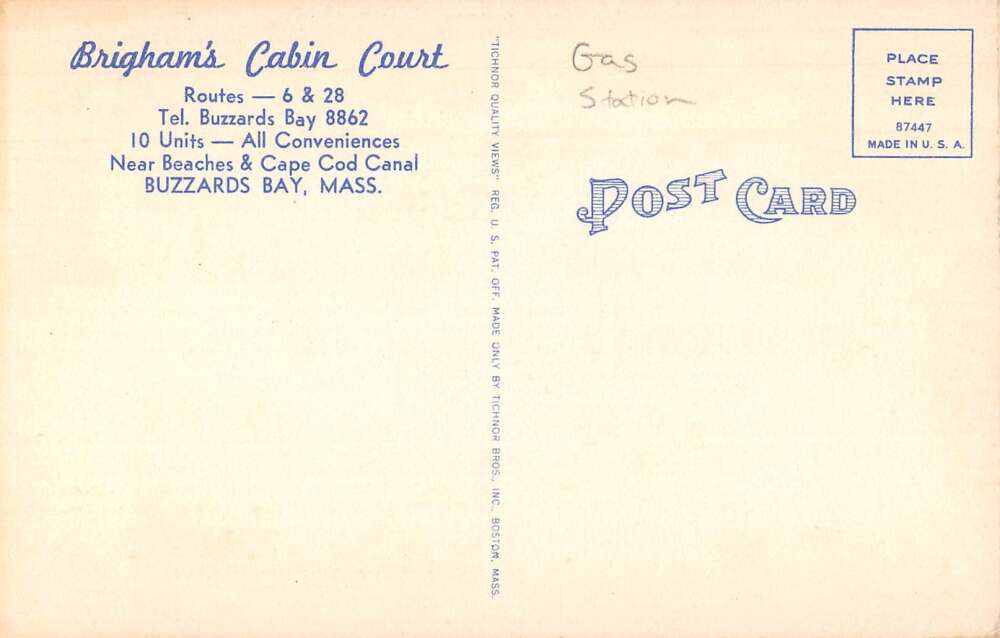 Brigham's Cabin Court
Routes — 6 & 28
Tel. Buzzards Bay 8862
10 Units — All Conveniences
Near Beaches & Cape Cod Canal
BUZZARDS BAY, MASS.
"TICHNOR QUALITY VIEWS" REG. U. S. PAT. OFF. MADE ONLY BY TICHNOR BROS., INC., BOSTON, MASS.
Gas
Station
PLACE
STAMP
HERE
87447
MADE IN U. S. A.
POST CARD